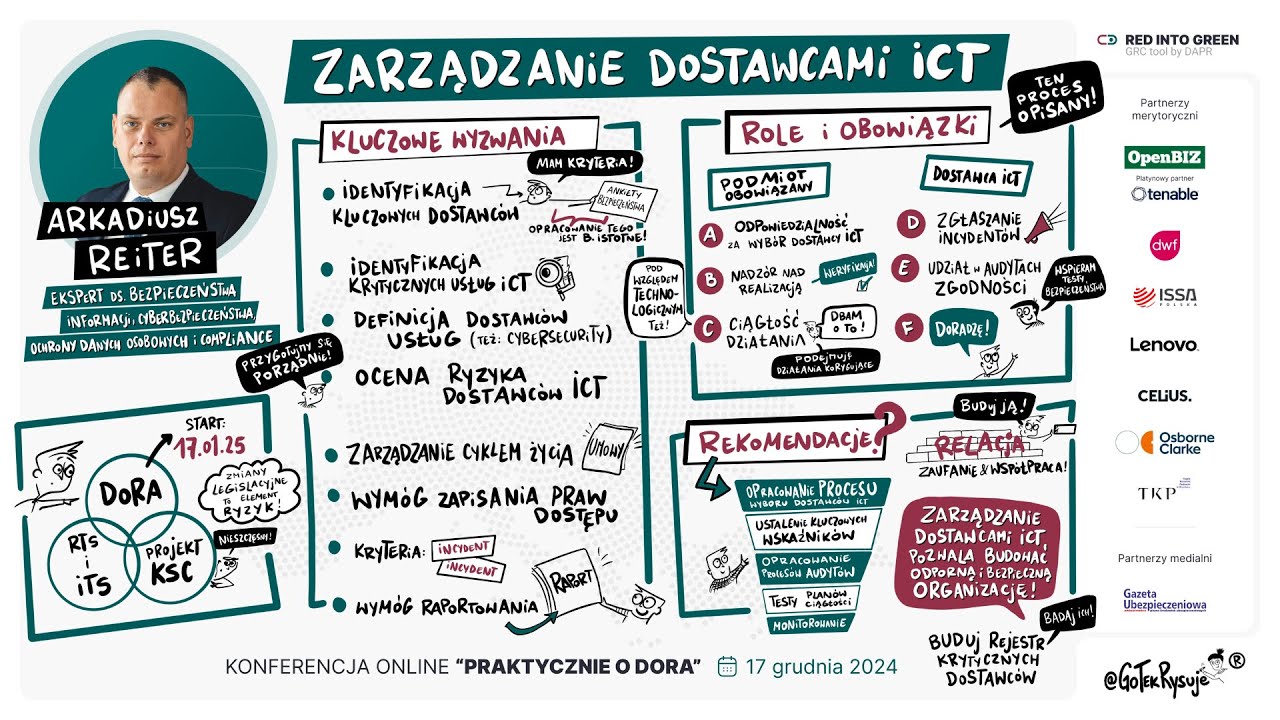 ZARZĄDZANIE DOSTAWCAMI ICT
ARKADIUSZ
REITER
EKSPERT DS. BEZPIECZEŃSTWA
INFORMACJI, CYBERBEZPIECZEŃSTWA,
OCHRONY DANYCH OSOBOWYCH I COMPLIANCE
PRZYGOTUJMY SIĘ
PORZĄDNIE!
START:
17.01.25
DORA
RTS
i
ITS
PROJEKT
KSC
ZMIANY
LEGISLACYJNE
TO ELEMENT
RYZYK!
NIESZCZĘSNY!
KLUCZOWE WYZWANIA
MAM KRYTERIA!
IDENTYFIKACJA
KLUCZOWYCH DOSTAWCÓW
ANKIETY
BEZPIECZEŃSTWA
OPRACOWANIE TEGO
JEST B. ISTOTNE!
IDENTYFIKACJA
KRYTYCZNYCH USŁUG ICT
DEFINICJA DOSTAWCÓW
USŁUG (TEŻ: CYBERSECURITY)
OCENA RYZYKA
DOSTAWCÓW ICT
ZARZĄDZANIE CYKLEM ŻYCIA
UMOWY
WYMÓG ZAPISANIA PRAW
DOSTĘPU
KRYTERIA: INCYDENT
INCYDENT
WYMÓG RAPORTOWANIA
RAPORT
ROLE i OBOWIĄZKI
TEN
PROCES
OPISANY!
PODMIOT
OBOWIĄZANY
A ODPOWIEDZIALNOŚĆ
ZA WYBÓR DOSTAWCY ICT
B NADZÓR NAD
REALIZACJĄ
WERYFIKACJA!
POD
WZGLĘDEM
TECHNO-
LOGICZNYM
TEŻ!
C CIĄGŁOŚĆ
DZIAŁANIA
DBAM
O TO!
PODEJMUJĘ
DZIAŁANIA KORYGUJĄCE
DOSTAWCA ICT
D ZGŁASZANIE
INCYDENTÓW
E UDZIAŁ W AUDYTACH
ZGODNOŚCI
WSPIERAM
TESTY
BEZPIECZEŃSTWA
F DORADZĘ!
REKOMENDACJE?
OPRACOWANIE PROCESU
WYBORU DOSTAWCÓW ICT
USTALENIE KLUCZOWYCH
WSKAŹNIKÓW
OPRACOWANIE
PROCESÓW AUDYTÓW
TESTY PLANÓW
CIĄGŁOŚCI
MONITOROWANIE
BUDUJ JĄ!
RELACJA
ZAUFANIE & WSPÓŁPRACA!
ZARZĄDZANIE
DOSTAWCAMI ICT,
POZWALA BUDOWAĆ
ODPORNĄ i BEZPIECZNĄ
ORGANIZACJĘ!
BADAJ ICH!
BUDUJ REJESTR
KRYTYCZNYCH
DOSTAWCÓW
KONFERENCJA ONLINE “PRAKTYCZNIE O DORA” 17 grudnia 2024
RED INTO GREEN
GRC tool by DAPR
Partnerzy
merytoryczni
OpenBIZ
Platynowy partner
tenable
dwf
ISSA
POLSKA
Lenovo
CELIUS.
Osborne
Clarke
TKP
Partnerzy medialni
Gazeta
Ubezpieczeniowa
@GoTekRysuje ®